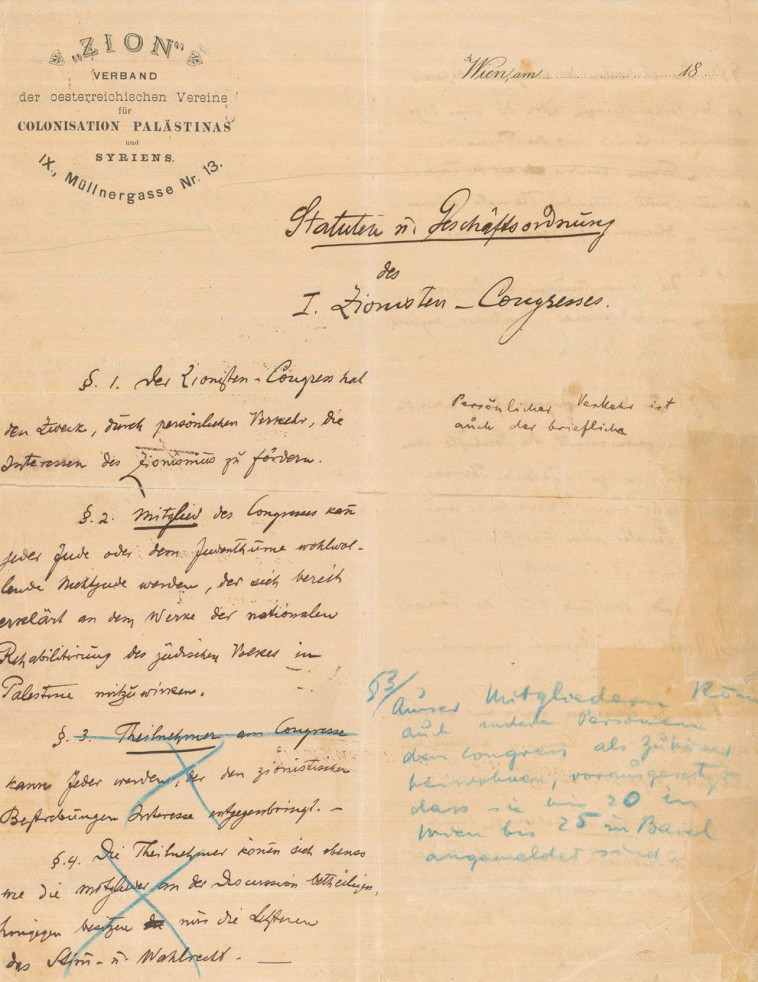 „ZION"
VERBAND
der oesterreichischen Vereine
für
COLONISATION PALÄSTINAS
und
SYRIENS.
IX., Müllnergasse Nr. 13.
Wien, am 18
Statuten u. Geschäftsordnung
des
I. Zionisten-Congresses.
§. 1. Der Zionisten-Congress hat
den Zweck, durch persönlichen Verkehr, die
Interessen des Zionismus zu fördern.
Persönlicher Verkehr ist
auch der briefliche
§. 2. Mitglied des Congresses kan
jeder Jude oder dem Judenthume wohlwol-
lende Nichtjude werden, der sich bereit
erklärt an dem Werke der nationalen
Rehabilitirung des jüdischen Volkes in
Palestina mitzuwirken.
§. 3. Theilnehmer am Congresse
kann jeder werden, der den zionistischen
Bestrebungen Interesse entgegenbringt. —
§3/ Ausser Mitgliedern Kön
auch andere Personen
dem Congress als Zuhörer
beiwohnen, vorausgesetzt
dass sie bis 20 in
Wien bis 25 in Basel
angemeldet sind
§. 4. Die Theilnehmer könen sich ebenso
wie die Mitglieder an der Discussion betheiligen,
hingegen besitzen nur die Letzteren
das Stim- u. Wahlrecht. —